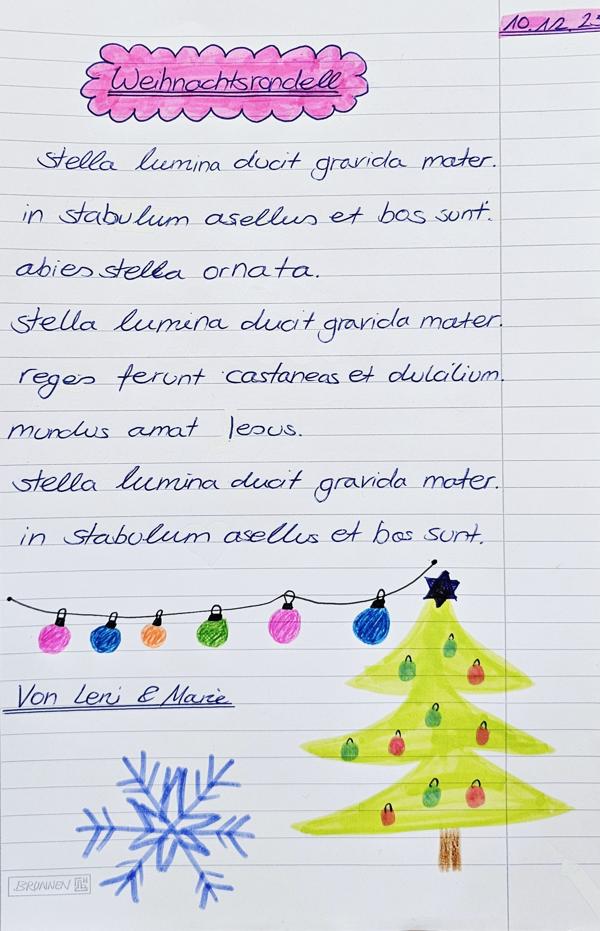 10.12.2
Weihnachtsrondell
stella lumina ducit gravida mater.
in stabulum asellus et bos sunt.
abies stella ornata.
stella lumina ducit gravida mater.
reges ferunt castaneas et dulcilium.
mundus amat Iesus.
stella lumina ducit gravida mater.
in stabulum asellus et bos sunt.
Von Leni & Marie
BRUNNEN